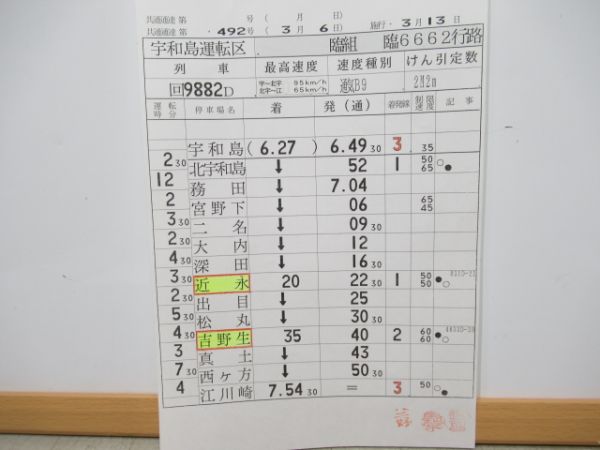 共通通達 第 号 ( 月 日)
共通通達 第 492 号 ( 3 月 6 日) 施行・3 月 13 日
宇和島運転区 臨組 臨6662行路
列車 最高速度 速度種別 けん引定数
回9882D 宇〜北宇 95km/h 通気B9 2M2m
北宇〜江 65km/h
運転時分 停車場名 着 発(通) 着発線 制限速度 記事
宇和島 (6.27) 6.49 30 3 35
2 30 北宇和島 ↓ 52 1 50 65 ○●
12 務田 ↓ 7.04
2 宮野下 ↓ 06 65 45
3 30 二名 ↓ 09 30
2 30 大内 ↓ 12
4 30 深田 ↓ 16 30
3 30 近永 20 22 30 1 50 50 ●○
2 30 出目 ↓ 25
5 30 松丸 ↓ 30 30
4 30 吉野生 35 40 2 60 60 ●○
3 真土 ↓ 43
7 30 西ヶ方 ↓ 50 30
4 江川崎 7.54 30 = 3 50 ○●